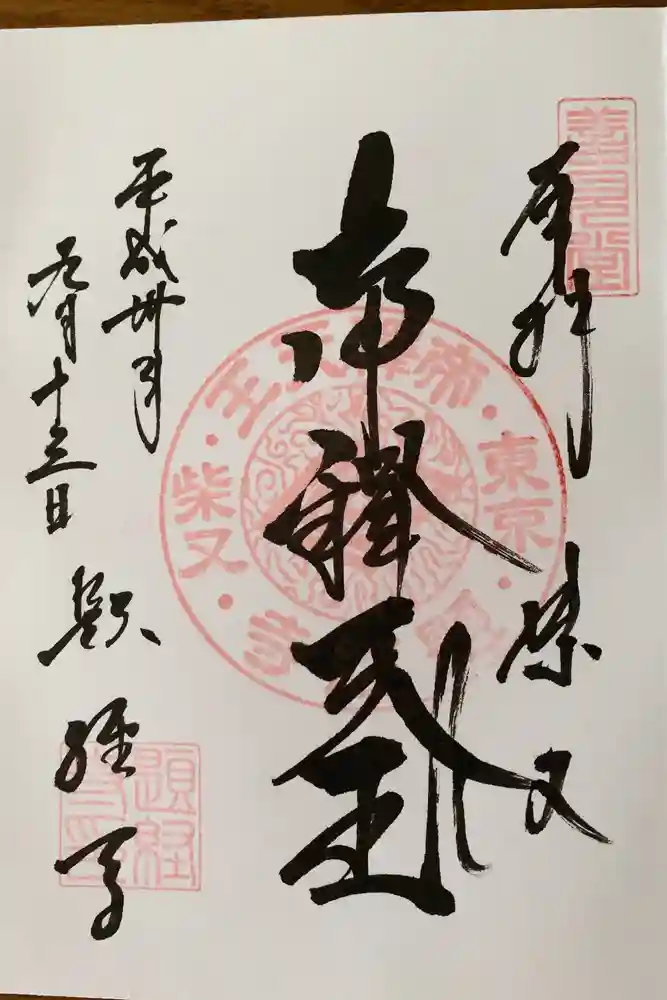 奉拝 柴又
帝釋天王
平成卅年
九月十三日
題経寺
東京
帝釋天王
柴又
題経寺印